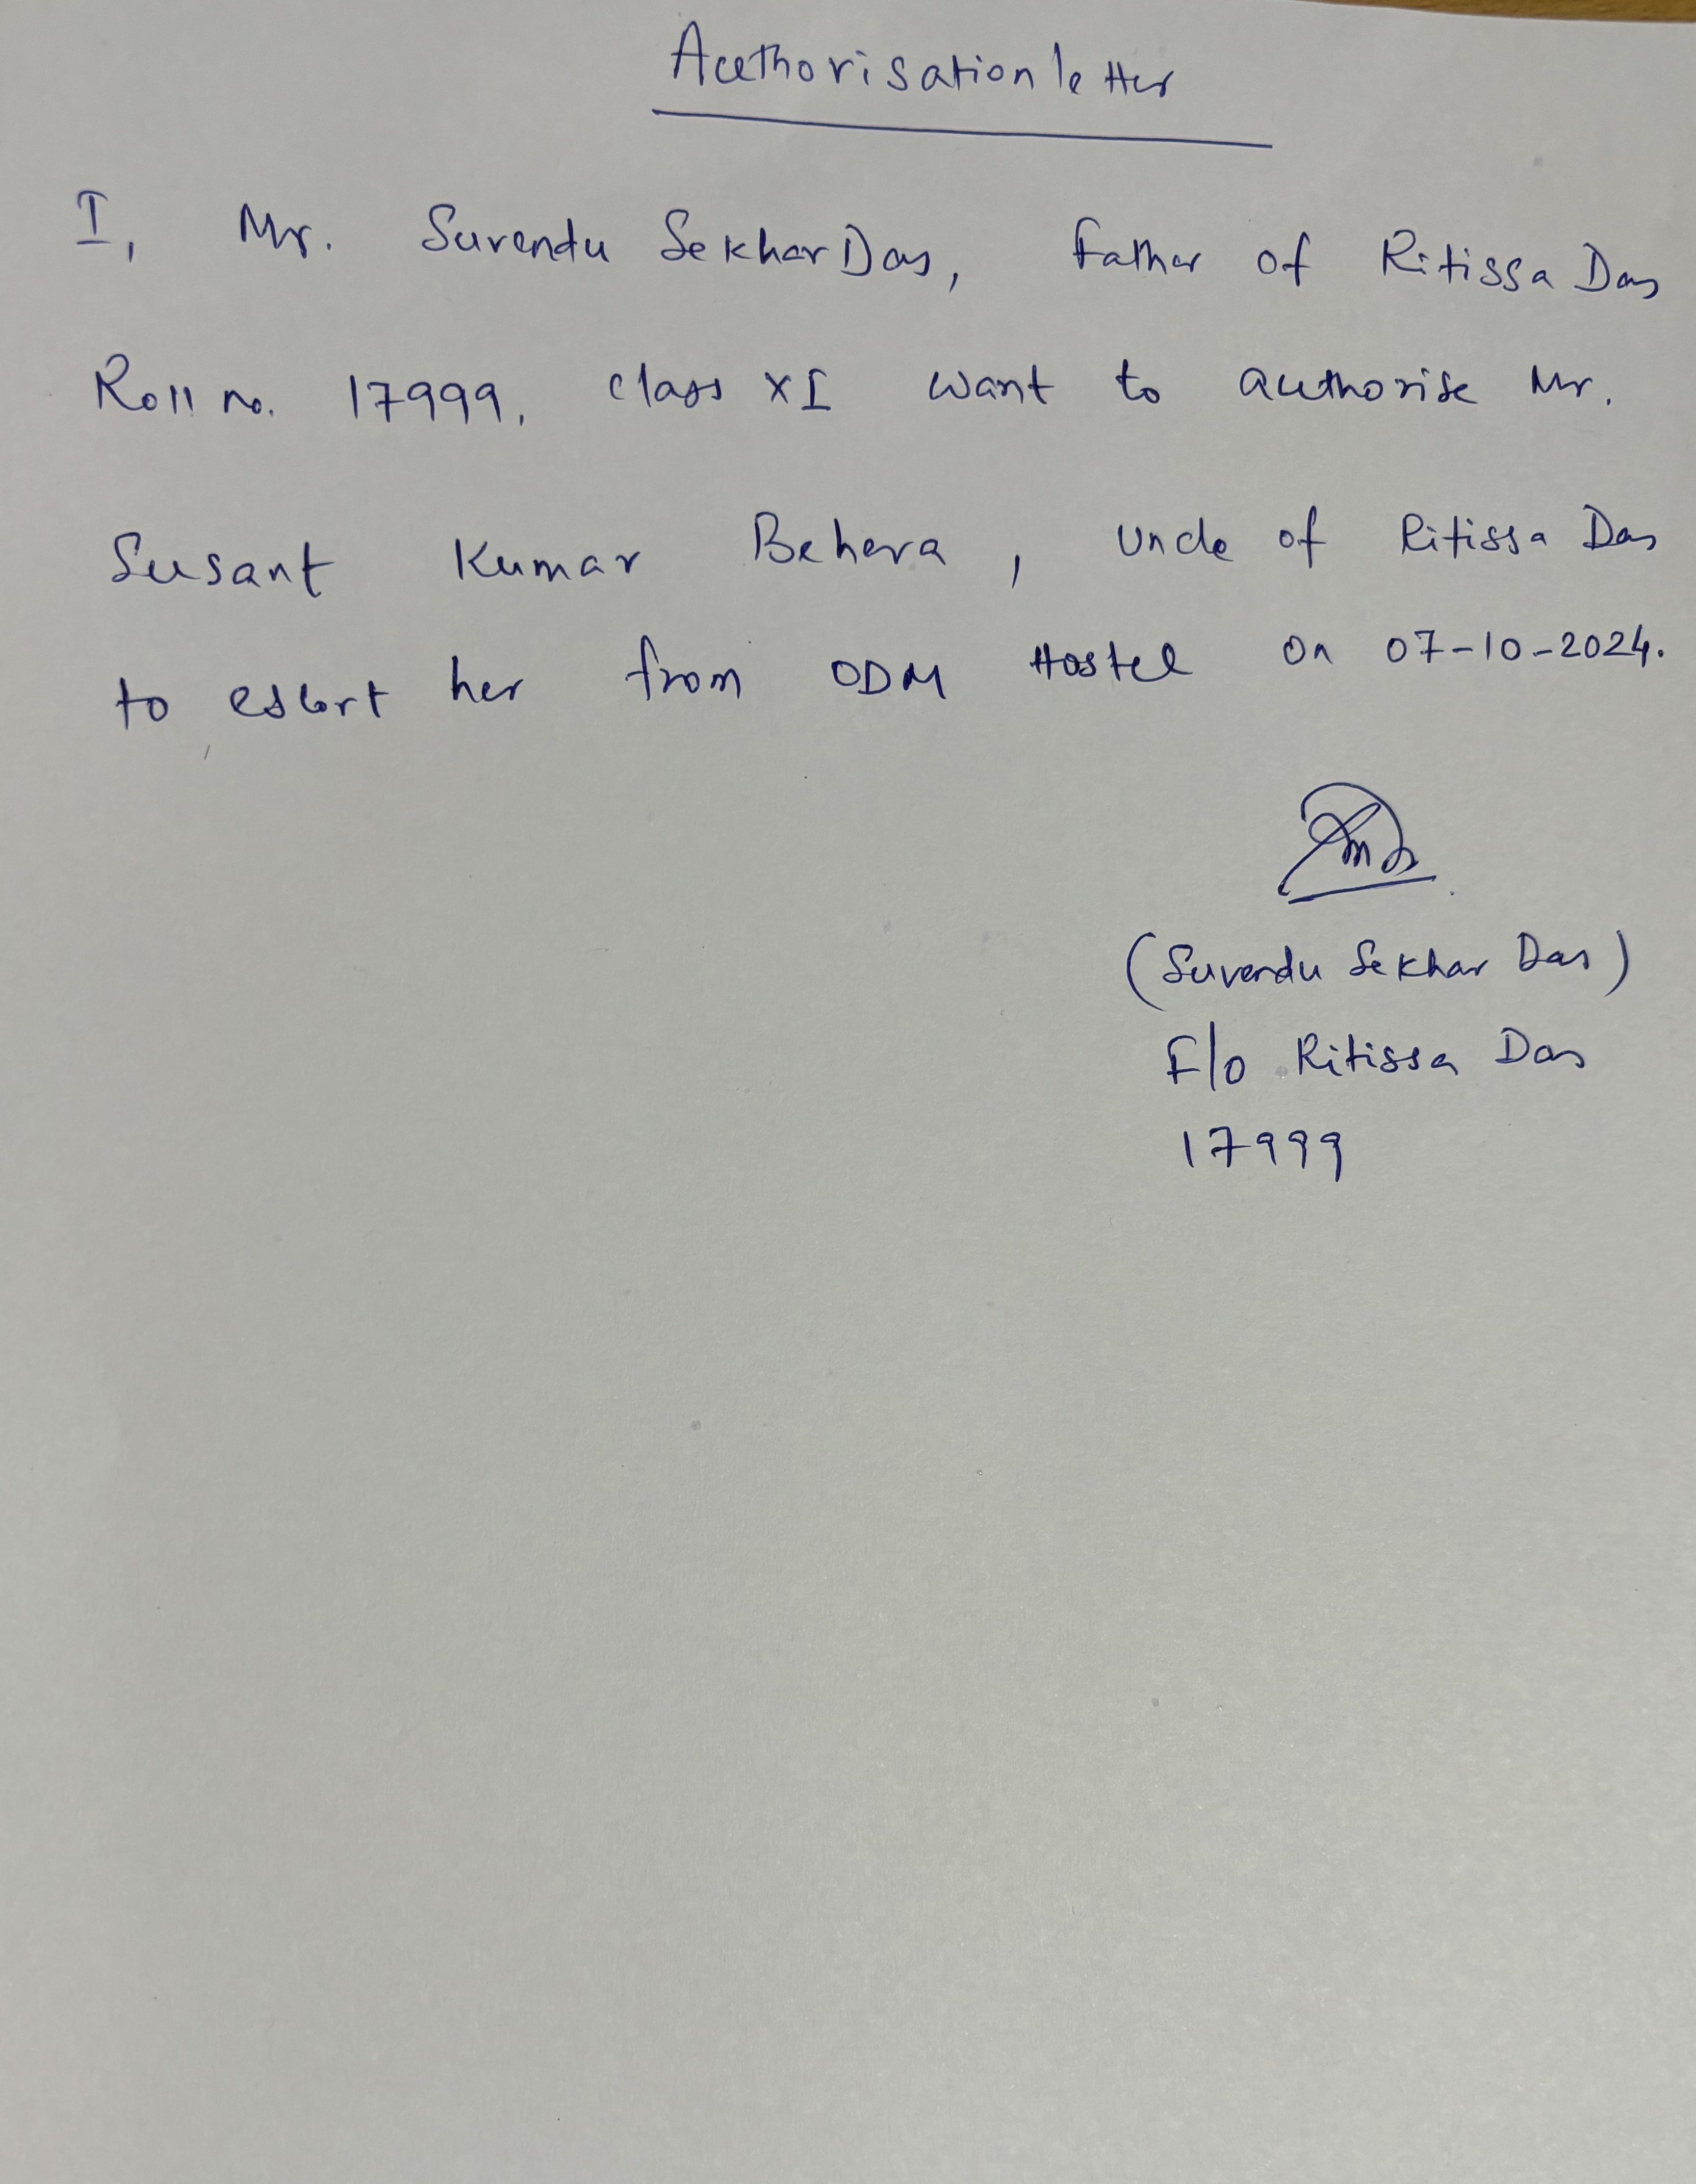 Authorisation letter
I, Mr. Suvendu Sekhar Das, Father of Ritissa Das
Roll no. 17999, class XI want to authorise Mr.
Susant Kumar Behera, Uncle of Ritissa Das
to escort her from ODM Hostel on 07-10-2024.
(Suvendu Sekhar Das)
F/o Ritissa Das
17999